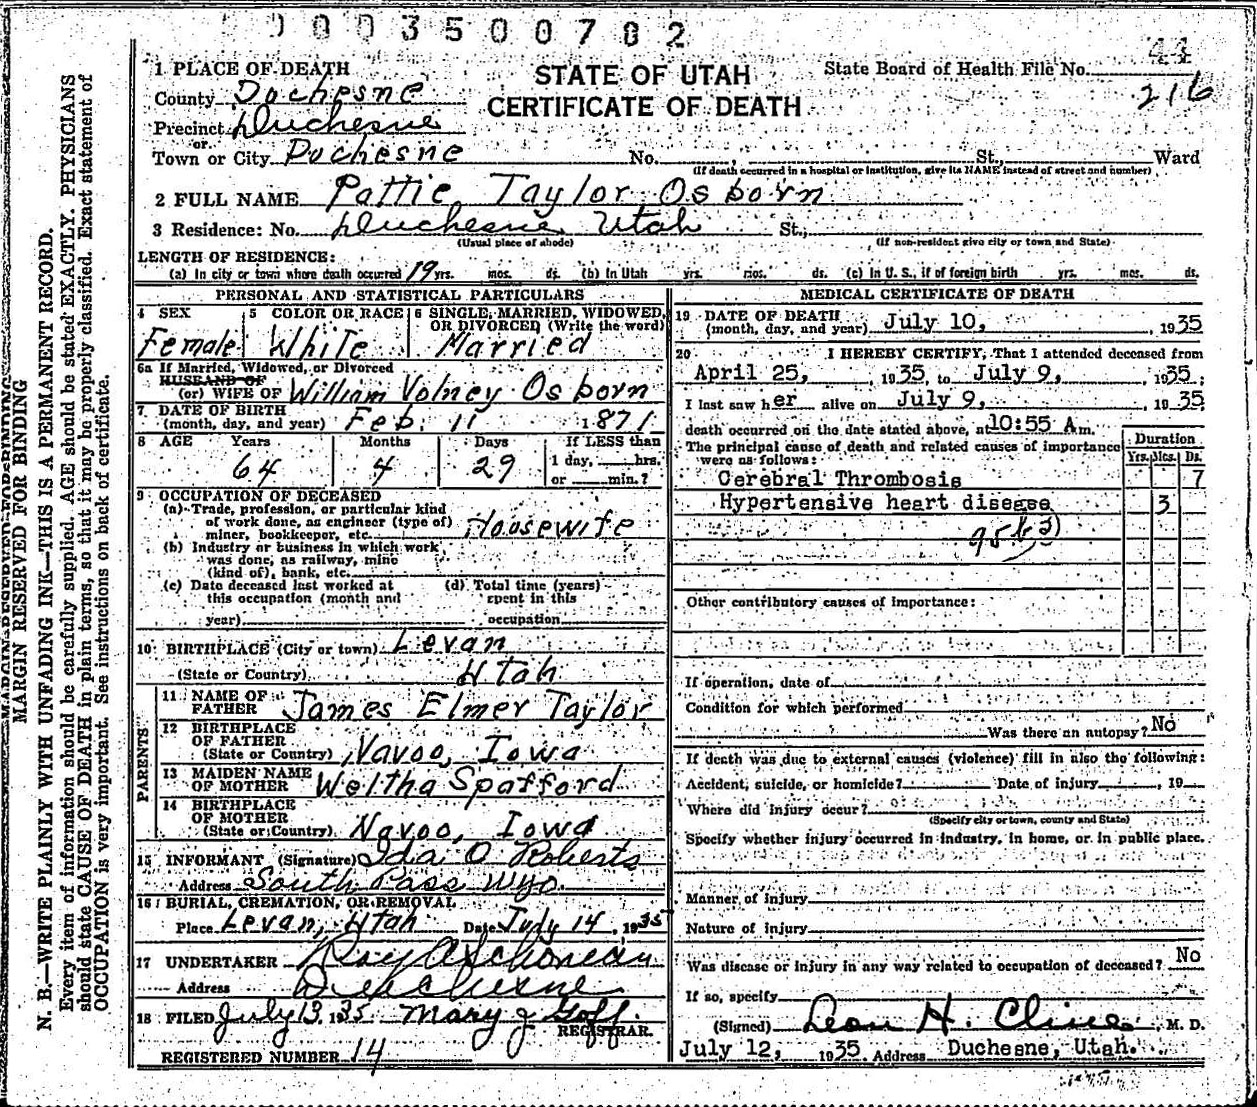 0003500702
1 PLACE OF DEATH
STATE OF UTAH
CERTIFICATE OF DEATH
State Board of Health File No. 44
216
County Duchesne
Precinct Duchesne
or
Town or City Duchesne No. , St., Ward
(If death occurred in a hospital or institution, give its NAME instead of street and number)
2 FULL NAME Pattie Taylor Osborn
3 Residence: No. Duchesne Utah St.,
(Usual place of abode) (If non-resident give city or town and State)
LENGTH OF RESIDENCE:
(a) In city or town where death occurred 19 yrs. mos. ds. (b) In Utah yrs. mos. ds. (c) In U. S., if of foreign birth yrs. mos. ds.
PERSONAL AND STATISTICAL PARTICULARS
4 SEX 5 COLOR OR RACE 6 SINGLE, MARRIED, WIDOWED, OR DIVORCED (Write the word)
Female White Married
6a If Married, Widowed, or Divorced
HUSBAND OF
(or) WIFE OF William Volney Osborn
7 DATE OF BIRTH
(month, day, and year) Feb. 11 1871
8 AGE Years Months Days If LESS than
64 4 29 1 day, hrs.
or min.?
9 OCCUPATION OF DECEASED
(a) Trade, profession, or particular kind
of work done, as engineer (type of)
miner, bookkeeper, etc. Housewife
(b) Industry or business in which work
was done, as railway, mine
(kind of), bank, etc.
(c) Date deceased last worked at
this occupation (month and
year)
(d) Total time (years)
spent in this
occupation
10 BIRTHPLACE (City or town) Levan
(State or Country) Utah
PARENTS
11 NAME OF
FATHER James Elmer Taylor
12 BIRTHPLACE
OF FATHER
(State or Country) Navoo, Iowa
13 MAIDEN NAME
OF MOTHER Weltha Spafford
14 BIRTHPLACE
OF MOTHER
(State or Country) Navoo, Iowa
15 INFORMANT (Signature) Ida O Roberts
Address South Pass Wyo.
16 BURIAL, CREMATION, OR REMOVAL
Place Levan, Utah Date July 14, 1935
17 UNDERTAKER Ray
Address Duchesne
18 FILED July 13, 1935 Mary J Goff.
REGISTRAR.
REGISTERED NUMBER 14
MEDICAL CERTIFICATE OF DEATH
19 DATE OF DEATH
(month, day, and year) July 10, 1935
20 I HEREBY CERTIFY, That I attended deceased from
April 25, 1935, to July 9, 1935;
I last saw her alive on July 9, 1935
death occurred on the date stated above, at 10:55 A m.
The principal cause of death and related causes of importance
were as follows:
Duration
Yrs. Mos. Ds.
Cerebral Thrombosis 7
Hypertensive heart disease 3
Other contributory causes of importance:
If operation, date of
Condition for which performed
Was there an autopsy? No
If death was due to external causes (violence) fill in also the following:
Accident, suicide, or homicide? Date of injury , 19
Where did injury occur?
(Specify city or town, county and State)
Specify whether injury occurred in industry, in home, or in public place.
Manner of injury
Nature of injury
Was disease or injury in any way related to occupation of deceased? No
If so, specify
(Signed) Leon H. Cline M. D.
July 12, 1935. Address Duchesne, Utah.
MARGIN RESERVED FOR BINDING
MARGIN RESERVED FOR BINDING
N. B.—WRITE PLAINLY WITH UNFADING INK—THIS IS A PERMANENT RECORD.
Every item of information should be carefully supplied. AGE should be stated EXACTLY. PHYSICIANS
should state CAUSE OF DEATH in plain terms, so that it may be properly classified. Exact statement of
OCCUPATION is very important. See instructions on back of certificate.